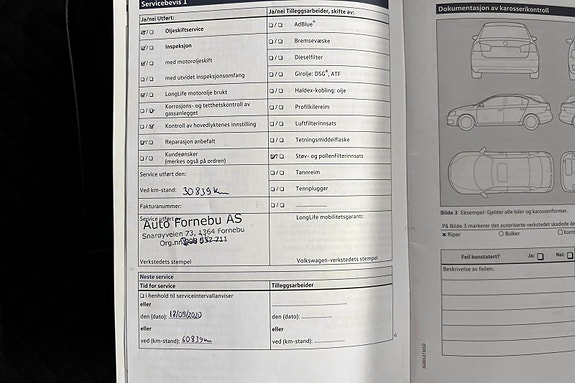 Servicebevis 1
Ja/nei Utført:
Ja/nei Tilleggsarbeider, skifte av:
Oljeskiftservice
AdBlue®
Inspeksjon
Bremsevæske
med motoroljeskift
Dieselfilter
med utvidet inspeksjonsomfang
Girolje: DSG®, ATF
LongLife motorolje brukt
Haldex-kobling: olje
Korrosjons- og tetthetskontroll av
gassanlegget
Profilkilereim
Kontroll av hovedlyktenes innstilling
Luftfilterinnsats
Reparasjon anbefalt
Tetningsmiddelflaske
Kundeønsker
(merkes også på ordren)
Støv- og pollenfilterinnsats
Service utført den:
Tannreim
Ved km-stand: 30839km
Tennplugger
Fakturanummer:
Service utført av
LongLife mobilitetsgaranti:
Auto Fornebu AS
Snarøyveien 73, 1364 Fornebu
Verkstedets stempel
Volkswagen-verkstedets stempel
Neste service
Tid for service
Tilleggsarbeider:
i henhold til serviceintervallanviser
eller
eller
den (dato): 18/09/2020
den (dato):
eller
eller
ved (km-stand): 60839km
ved (km-stand):
Dokumentasjon av karosserikontroll
Bilde 3 Eksempel: Gjelder alle biler og karosseriformer.
På Bilde 3 markerer det autoriserte verkstedet skadene
Riper
Bulker
Feil konstatert?
Ja:
Nei:
Beskrivelse av feilen: